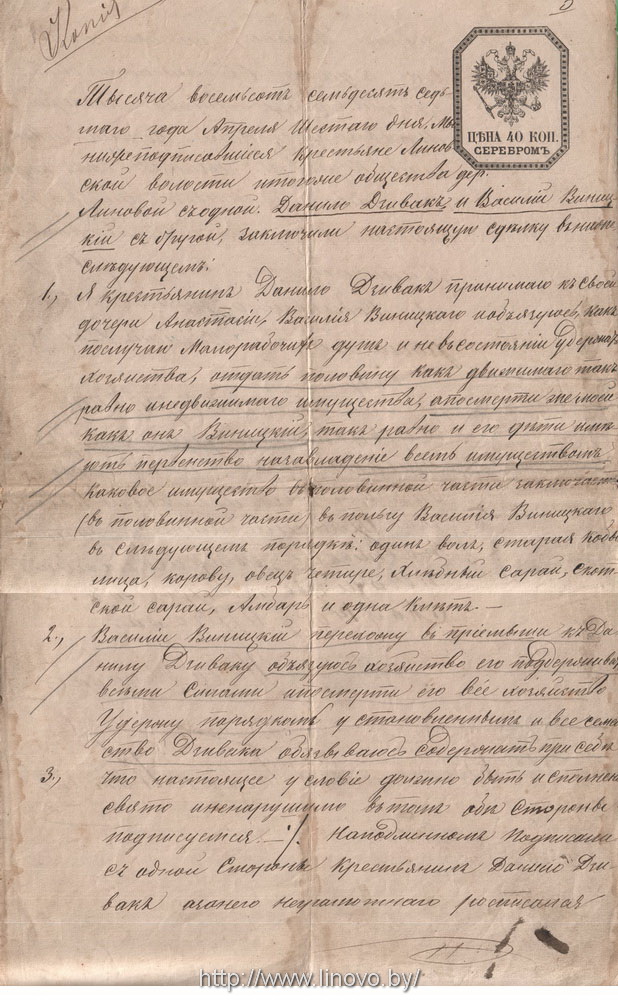 Копія
ЦѢНА 40 КОП.
СЕРЕБРОМЪ
Тысяча восемьсотъ семьдесятъ седь-
маго года Апреля Шестаго дня, Мы
нижеподписавшіеся крестьяне Линов-
ской волости итогоже общества дер.
Линовой съодной. Данило Дзивакъ и Василій Виниц-
кій съ другой, заключили настоящую сдѣлку въ
слѣдующемъ:
1., Я крестьянинъ Данило Дзивакъ принимаю къ своей
дочери Анастасіи, Василія Виницкаго иобязуюсь, какъ
послучаю Малорабочихъ душъ и невъсостояніи Удержать
хозяйства, отдать половину какъ движимаго такъ
равно инедвижимаго имущества, апосмерти же моей
какъ онъ Виницкій, такъ равно и его дѣти имѣ-
ютъ первенство назавладеніе всемъ имуществомъ,
Каковое имущество въ половинной части заключаетъ
(въ половинной части) въ пользу Василія Виницкаго
въ слѣдующемъ порядкѣ: одинъ волъ, старая кобы-
лица, корову, овецъ четире, Хлѣбный сарай, скот-
ской сарай, Амбаръ и одна Клѣть. —
2., Василій Виницкій перехожу въ пріемыши къ Да-
нилу Дзиваку обязуюсь хозяйство его поддерживать
всѣми Силами ипосмерти его всё хозяйство
Удержу порядкомъ установленнымъ и все семе-
ство Дзивака обязываюсь содержать при себѣ
3., Что настоящее условіе должно быть исполнено
свято иненарушимо въ томъ обѣ Стороны
подписуемся. —  Наподлинномъ Подписали
съ одной Стороны крестьянинъ Данило Дзи-
вакъ азанего неграмотнаго росписался
http://www.linovo.by/